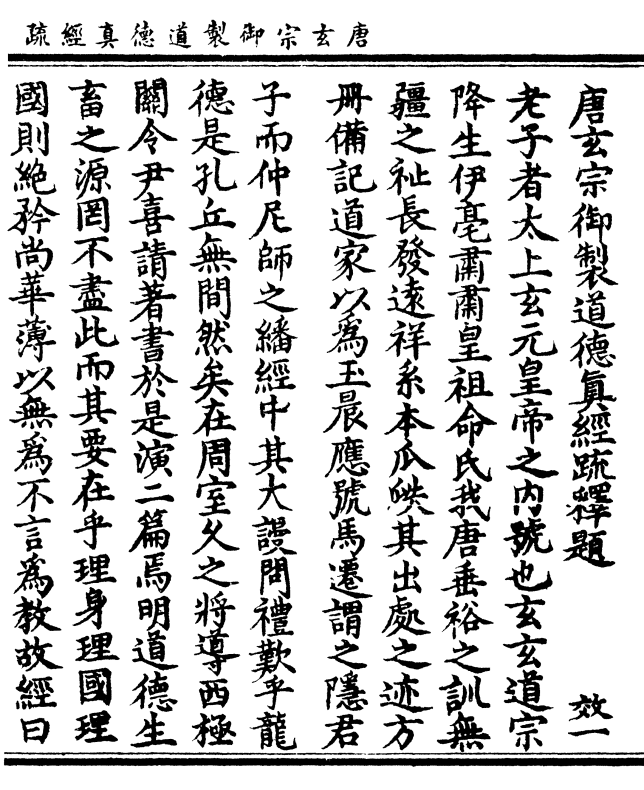 唐玄宗御製道德真經疏
唐玄宗御製道德眞經疏釋題 效一
老子者太上玄元皇帝之内號也玄玄道宗
降生伊亳肅肅皇祖命氏我唐垂裕之訓無
疆之祉長發遠祥系本瓜瓞其出處之迹方
册備記道家以為玉晨應號馬遷謂之隱君
子而仲尼師之繙經中其大謾問禮歎乎龍
德是孔丘無間然矣在周室久之將導西極
關令尹喜請著書於是演二篇焉明道德生
畜之源罔不盡此而其要在乎理身理國理
國則絶矜尚華薄以無為不言為教故經曰